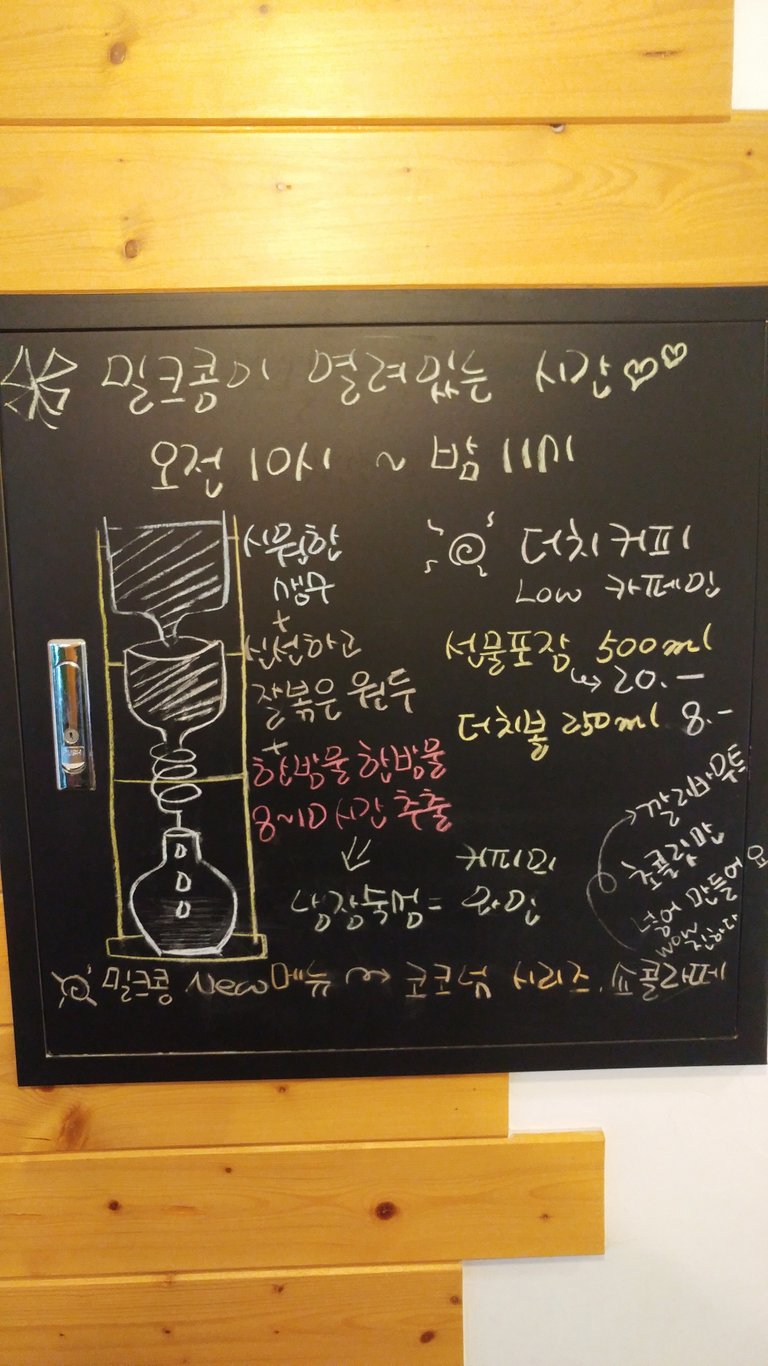 밀크콩이 열려있는 시간
오전 10시 ~ 밤 11시
시원한
생수
+
신선하고
잘볶은 원두
+
한방울 한방울
8~10시간 추출
냉장숙성 = 커피의
와인
더치커피
Low 카페인
선물포장 500ml
20.-
더치볼 250ml 8.-
깔리바우트
초콜릿만
넣어 만들어요
wow 진하다
밀크콩 New메뉴 코코넛 시리즈, 쇼콜라떼
PUSH